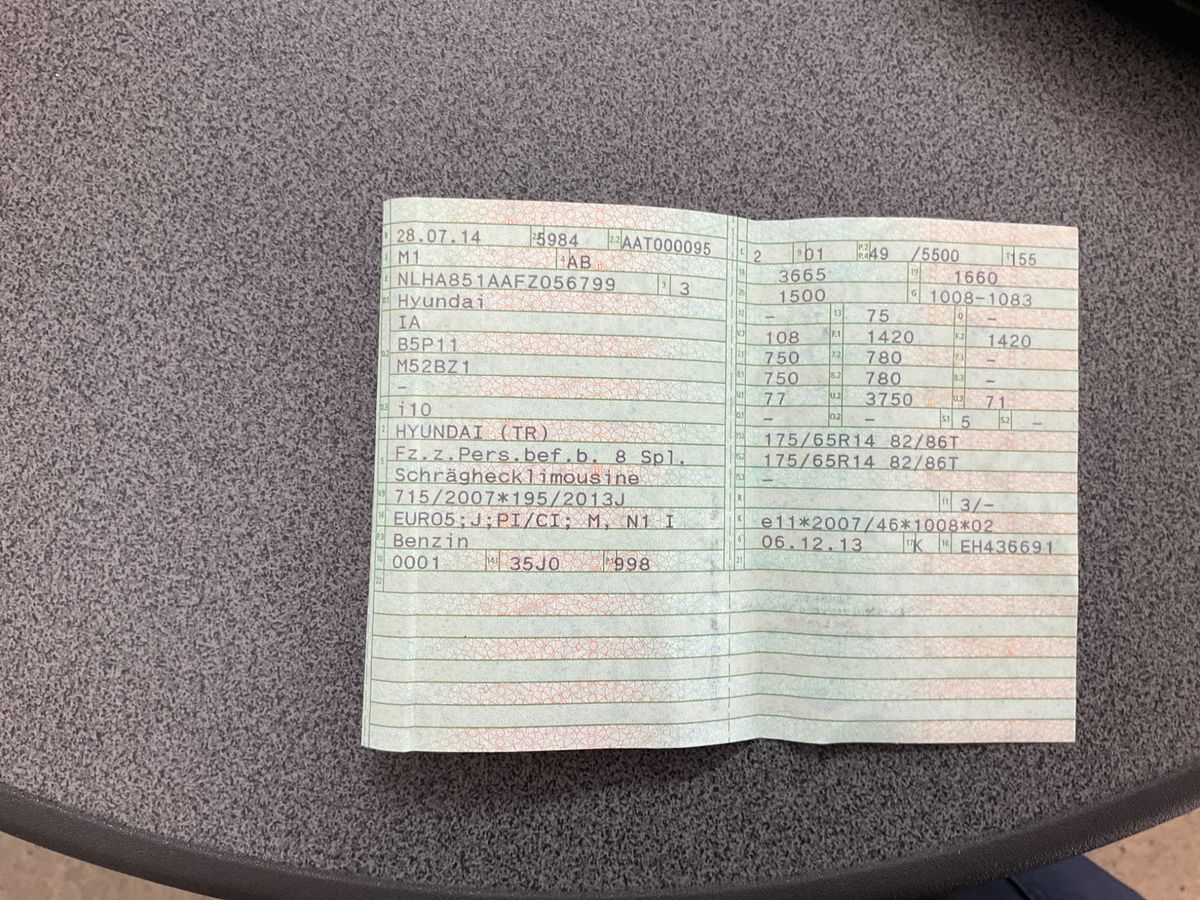 28.07.14 2.1 5984 2.2 AAT000095
J M1 4 AB
E NLHA851AAFZ056799 3 3
D.1 Hyundai
IA
B5P11
D.2 M52BZ1
–
D.3 i10
2 HYUNDAI (TR)
5 Fz.z.Pers.bef.b. 8 Spl.
Schräghecklimousine
V.9 715/2007*195/2013J
14 EURO5;J;PI/CI; M, N1 I
P.3 Benzin
10 0001 14.1 35J0 P.1 998
22
L 2 9 01 P.2 P.4 49 /5500 T 155
18 3665 19 1660
20 1500 G 1008-1083
12 – 13 75 Q –
V.7 108 F.1 1420 F.2 1420
7.1 750 7.2 780 7.3 –
8.1 750 8.2 780 8.3 –
U.1 77 U.2 3750 U.3 71
O.1 – O.2 – S.1 5 S.2 –
15.1 175/65R14 82/86T
15.2 175/65R14 82/86T
15.3 –
R 11 3/-
K e11*2007/46*1008*02
6 06.12.13 17 K 16 EH436691
21